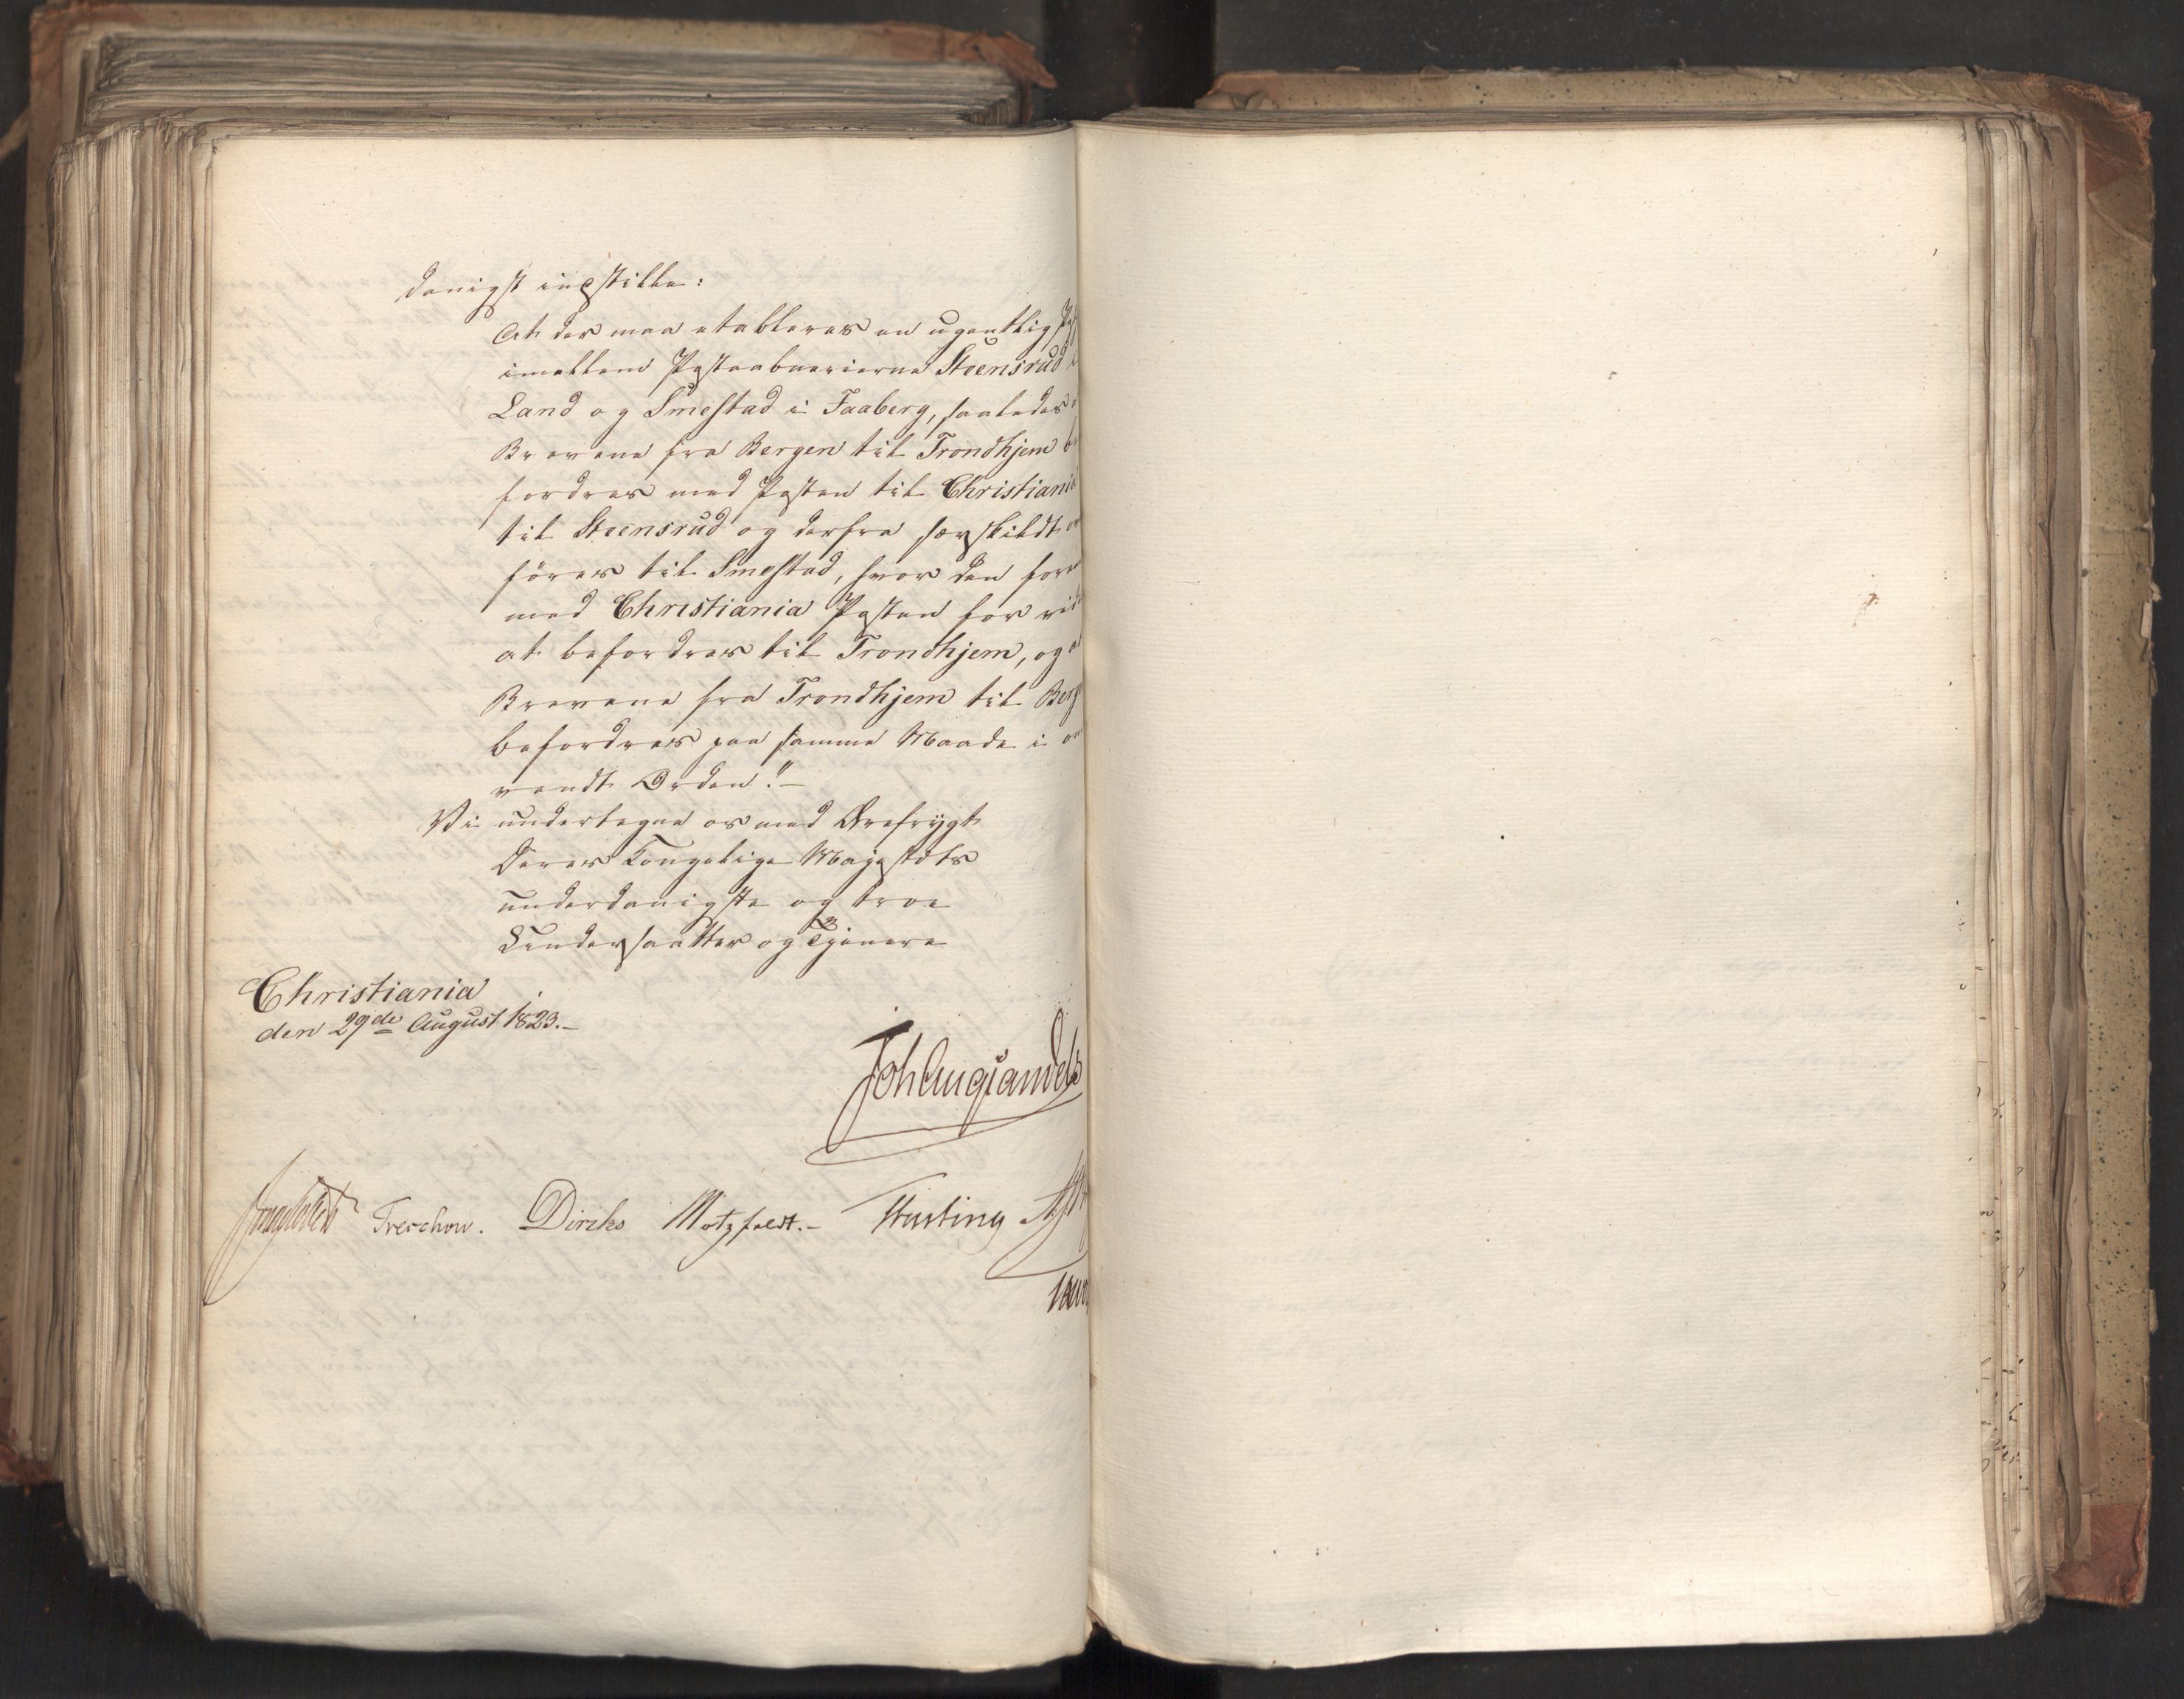 danigst indstille:
At der maa etableres en ugentlig
imellem Postaabnerierne Steensrud
Land og Smestad i Faaberg, saaledes
Brevene fra Bergen til Trondhjem
fordres med Posten til Christiania
til Steensrud og derfra særskildt
föres til Smestad, hvor den
med Christiania Posten for
at befordres til Trondhjem, og
Brevene fra Trondhjem til
befordres paa samme Maade i
vendt Orden." —
Vi undertegne os med Ærefrygt
Deres Kongelige Majestæts
underdanigste og troe
Undersaatter og Tjenere
Christiania
den 29de August 1823. —
Joh Aug Sandels
Treschow. Diriks Motzfeldt. — Fasting